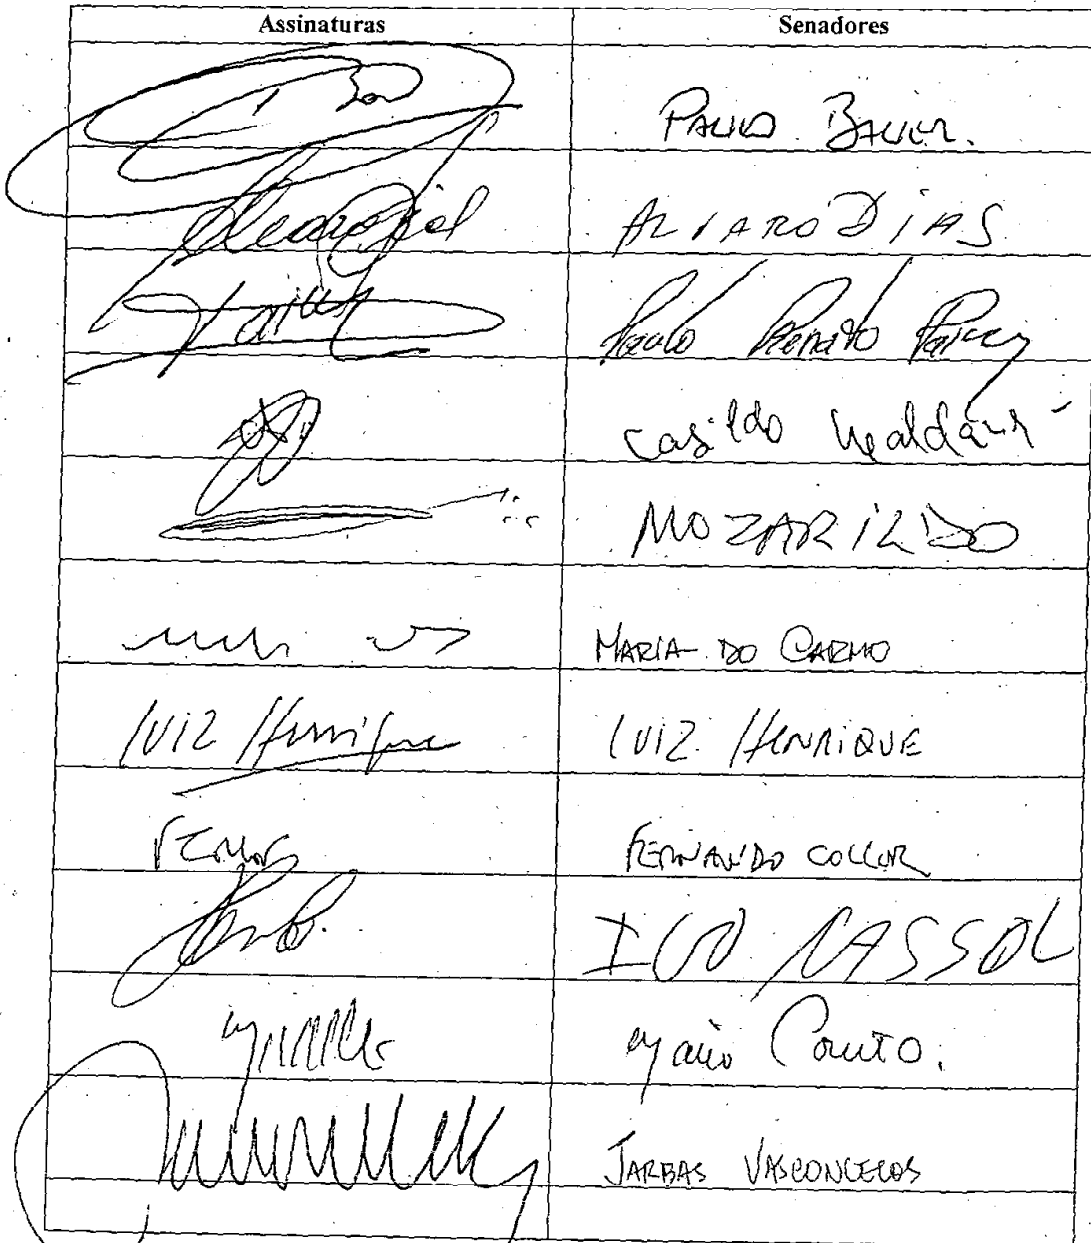 Assinaturas Senadores
PAULO BAUER.
ALVARO DIAS
Paulo
Casildo Maldaner
MOZARILDO
MARIA DO CARMO
LUIZ Henrique LUIZ HENRIQUE
FCollor FERNANDO COLLOR
IVO CASSOL
Mário Couto.
JARBAS VASCONCELOS